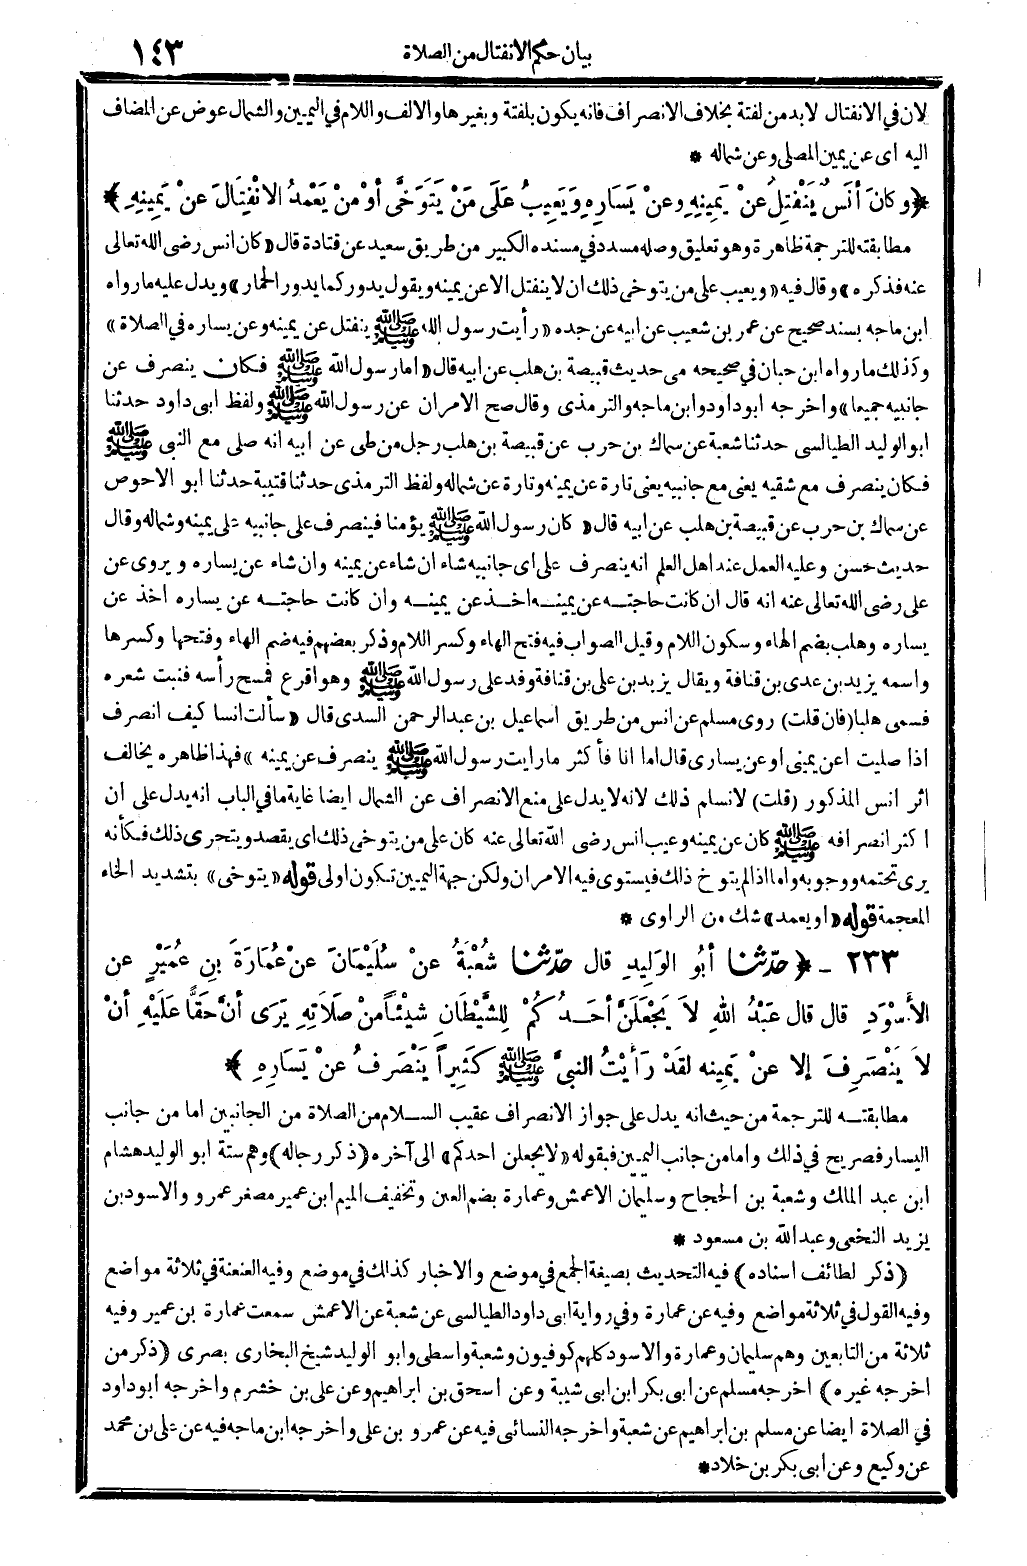 بيان حكم الانفتال من الصلاة ١٤٣
لان في الانفتال لا بد من لفتة بخلاف الانصراف فانه يكون بلفتة وبغيرها والالف واللام في اليمين والشمال عوض عن المضاف
اليه اى عن يمين المصلى وعن شماله *
﴿وكانَ أنَسٌ يَنْفَتِلُ عنْ يَمِينِهِ وعنْ يَسارِهِ ويَعِيبُ علَى مَنْ يَتَوَخَّى أوْ منْ يَعْمِدُ الانْفِتَالَ عنْ يَمِينِهِ﴾
مطابقته للترجمة ظاهرة وهو تعليق وصله مسدد في مسنده الكبير من طريق سعيد عن قتادة قال «كان انس رضى الله تعالى
عنه فذكره» وقال فيه «ويعيب على من يتوخى ذلك ان لا ينفتل الا عن يمينه ويقول يدور كما يدور الحمار» ويدل عليه مارواه
ابن ماجه بسند صحيح عن عمر بن شعيب عن ابيه عن جده «رأيت رسول الله ﷺ ينفتل عن يمينه وعن يساره في الصلاة»
وكذلك مارواه ابن حبان في صحيحه من حديث قبيصة بن هلب عن ابيه قال «امنا رسول الله ﷺ فكان ينصرف عن
جانبيه جميعا» واخرجه ابو داود وابن ماجه والترمذى وقال صح الامران عن رسول الله ﷺ ولفظ ابى داود حدثنا
ابو الوليد الطيالسى حدثنا شعبة عن سماك بن حرب عن قبيصة بن هلب رجل من طى عن ابيه انه صلى مع النبى ﷺ
فكان ينصرف مع شقيه يعنى مع جانبيه يعنى تارة عن يمينه وتارة عن شماله ولفظ الترمذى حدثنا قتيبة حدثنا ابو الاحوص
عن سماك بن حرب عن قبيصة بن هلب عن ابيه قال «كان رسول الله ﷺ يؤمنا فينصرف على جانبيه على يمينه وشماله وقال
حديث حسن وعليه العمل عند اهل العلم انه ينصرف على اى جانبيه شاء ان شاء عن يمينه وان شاء عن يساره ويروى عن
على رضى الله تعالى عنه انه قال ان كانت حاجته عن يمينه اخذ عن يمينه وان كانت حاجته عن يساره اخذ عن
يساره وهلب بضم الهاء وسكون اللام وقيل الصواب فيه فتح الهاء وكسر اللام وذكر بعضهم فيه ضم الهاء وفتحها وكسرها
واسمه يزيد بن عدى بن قنافة ويقال يزيد بن على بن قنافة وفد على رسول الله ﷺ وهو اقرع فمسح رأسه فنبت شعره
فسمى هلبا (فان قلت) روى مسلم عن انس من طريق اسماعيل بن عبد الرحمن السدى قال «سألت انسا كيف انصرف
اذا صليت اعن يمينى او عن يسارى قال اما انا فأكثر مارايت رسول الله ﷺ ينصرف عن يمينه» فهذا ظاهره يخالف
اثر انس المذكور (قلت) لانسلم ذلك لانه لا يدل على منع الانصراف عن الشمال ايضا غاية ما في الباب انه يدل على أن
اكثر انصرافه ﷺ كان عن يمينه وعيب انس رضى الله تعالى عنه كان على من يتوخى ذلك اى يقصد ويتحرى ذلك فكأنه
يرى تحتمه ووجوبه واما اذا لم يتوخ ذلك فيستوى فيه الامران ولكن جهة اليمين تكون اولى قوله «يتوخى» بتشديد الخاء
المعجمة قوله «او يعمد» شك من الراوى *
٢٣٣ - ﴿حَدَّثنا أبُو الوَلِيدِ قال حَدَّثنا شُعْبَةُ عنْ سُلَيْمَانَ عنْ عُمَارَةَ بنِ عُمَيْرٍ عن
الأَسْوَدِ قال قال عَبْدُ اللهِ لاَ يَجْعَلَنَّ أحَدُكُمْ لِلشَّيْطَانِ شَيْئاً منْ صَلاَتِهِ يَرَى أنَّ حَقًّا عَلَيْهِ أنْ
لاَ يَنْصَرِفَ إلا عنْ يَمِينِهِ لقَدْ رَأيْتُ النبىَّ ﷺ كَثِيراً يَنْصَرِفُ عنْ يَسَارِهِ﴾
مطابقته للترجمة من حيث انه يدل على جواز الانصراف عقيب السلام من الصلاة من الجانبين اما من جانب
اليسار فصريح في ذلك واما من جانب اليمين فبقوله «لا يجعلن احدكم» الى آخره (ذكر رجاله) وهم ستة ابو الوليد هشام
ابن عبد الملك وشعبة بن الحجاج وسليمان الاعمش وعمارة بضم العين وتخفيف الميم ابن عمير مصغر عمرو والاسود بن
يزيد النخعى وعبد الله بن مسعود *
(ذكر لطائف اسناده) فيه التحديث بصيغة الجمع في موضع والاخبار كذلك في موضع وفيه العنعنة في ثلاثة مواضع
وفيه القول في ثلاثة مواضع وفيه عن عمارة وفي رواية ابى داود الطيالسى عن شعبة عن الاعمش سمعت عمارة بن عمير وفيه
ثلاثة من التابعين وهم سليمان وعمارة والاسود كلهم كوفيون وشعبة واسطى وابو الوليد شيخ البخارى بصرى (ذكر من
اخرجه غيره) اخرجه مسلم عن ابى بكر ابن ابى شيبة وعن اسحق بن ابراهيم وعن على بن خشرم واخرجه ابو داود
في الصلاة ايضا عن مسلم بن ابراهيم عن شعبة واخرجه النسائى فيه عن عمرو بن على واخرجه ابن ماجه فيه عن على بن محمد
عن وكيع وعن ابى بكر بن خلاد *